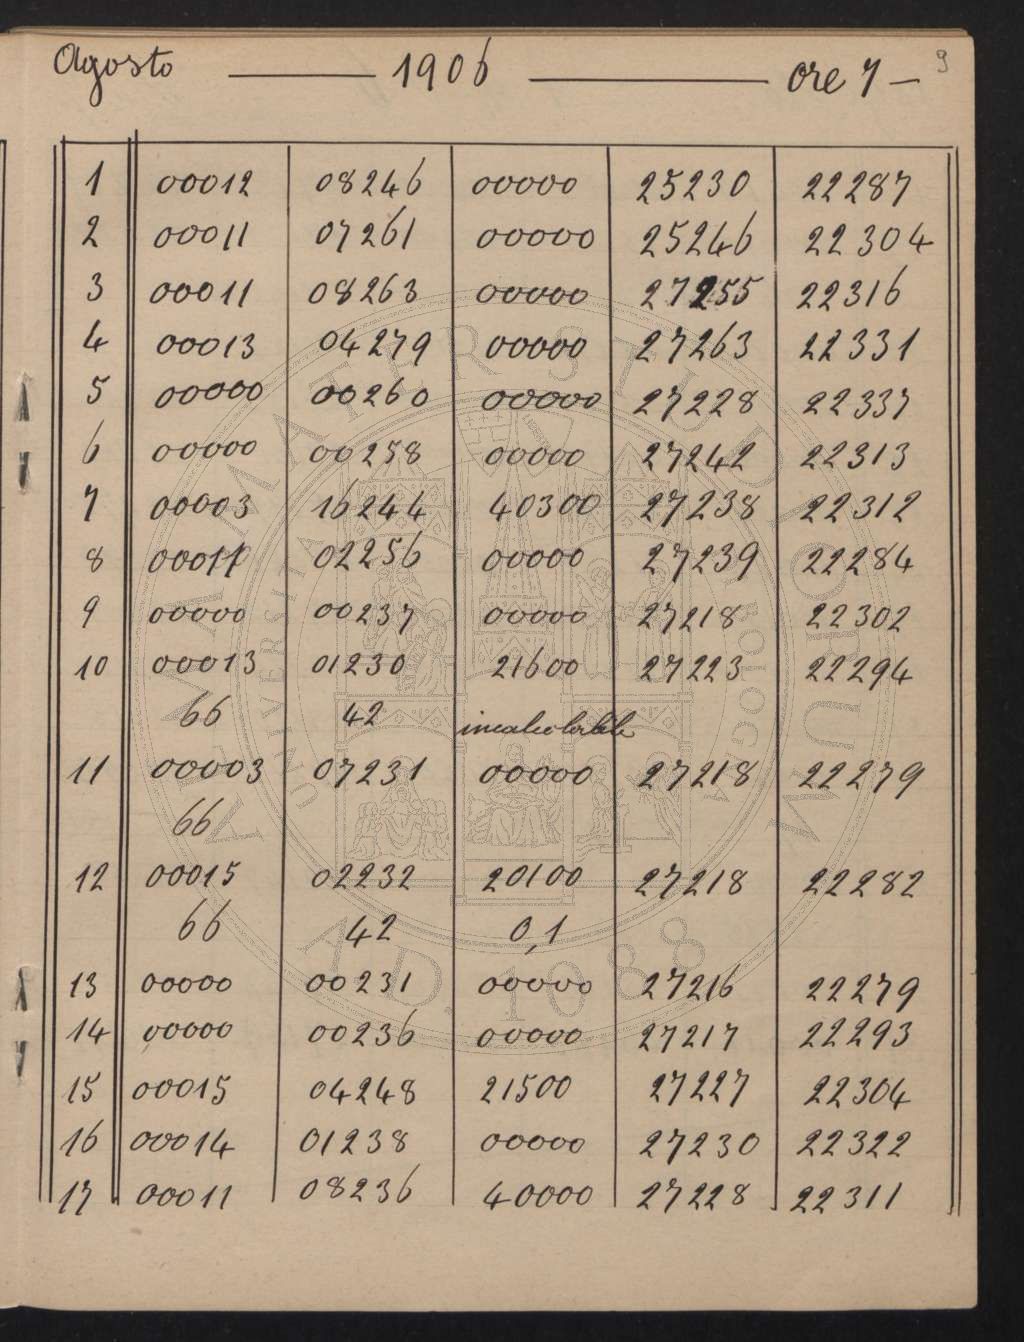 Agosto — 1906 — ore 7 — 9
1 00012 08246 00000 25230 22287
2 00011 07261 00000 25246 22304
3 00011 08263 00000 27255 22316
4 00013 04279 00000 27263 22331
5 00000 00260 00000 27228 22337
6 00000 00258 00000 27242 22313
7 00003 16244 40300 27238 22312
8 00011 02256 00000 27239 22284
9 00000 00237 00000 27218 22302
10 00013 01230 21600 27223 22294
66 42 incalcolabile
11 00003 07231 00000 27218 22279
66
12 00015 02232 20100 27218 22282
66 42 0,1
13 00000 00231 00000 27216 22279
14 00000 00236 00000 27217 22293
15 00015 04248 21500 27227 22304
16 00014 01238 00000 27230 22322
17 00011 08236 40000 27228 22311
ALMA MATER STUDIORUM
A.D. 1088